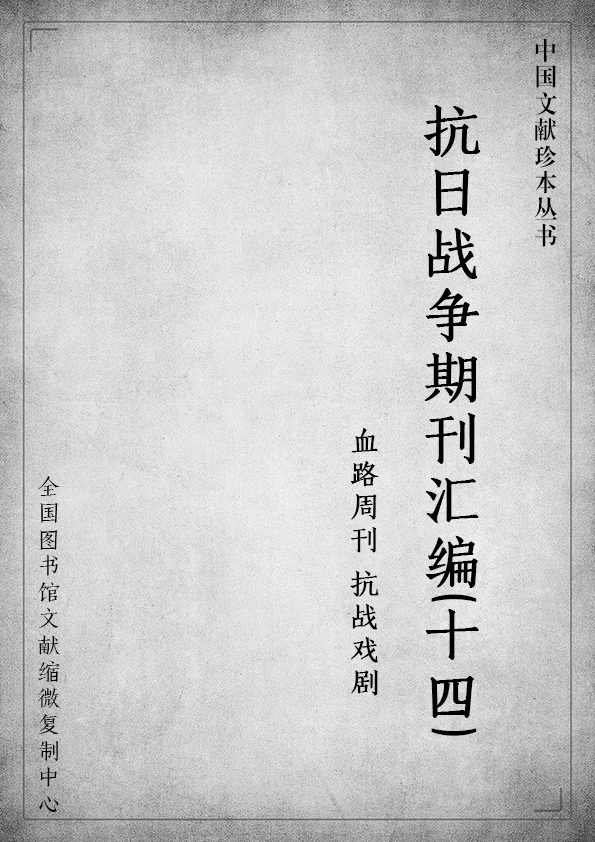 中国文献珍本丛书
抗日战争期刊汇编(十四)
血路周刊 抗战戏剧
全国图书馆文献缩微复制中心